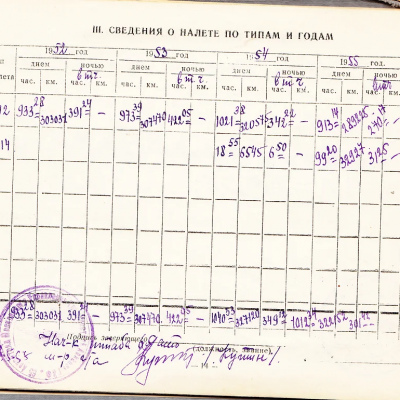 III. СВЕДЕНИЯ О НАЛЕТЕ ПО ТИПАМ И ГОДАМ
1952 год 1953 год 1954 год 1955 год
днем ночью днем ночью днем ночью днем ночью
в т.ч. в т.ч. в т.ч. в т.ч.
час. км. час. км. час. км. час. км. час. км. час. км. час. км. час. км.
12 933 28 303031 391 24 – 973 39 307470 422 05 – 1021 38 320575 342 22 – 913 14 289225 270 17 –
14 18 55 6545 6 50 – 99 20 32927 31 25 –
933 28 303031 391 24 – 973 39 307470 422 05 – 1040 53 327120 349 12 – 1012 34 322152 301 42 –
Подпись
(должность, звание)
Нач-к штаба
м-р
– 14 –